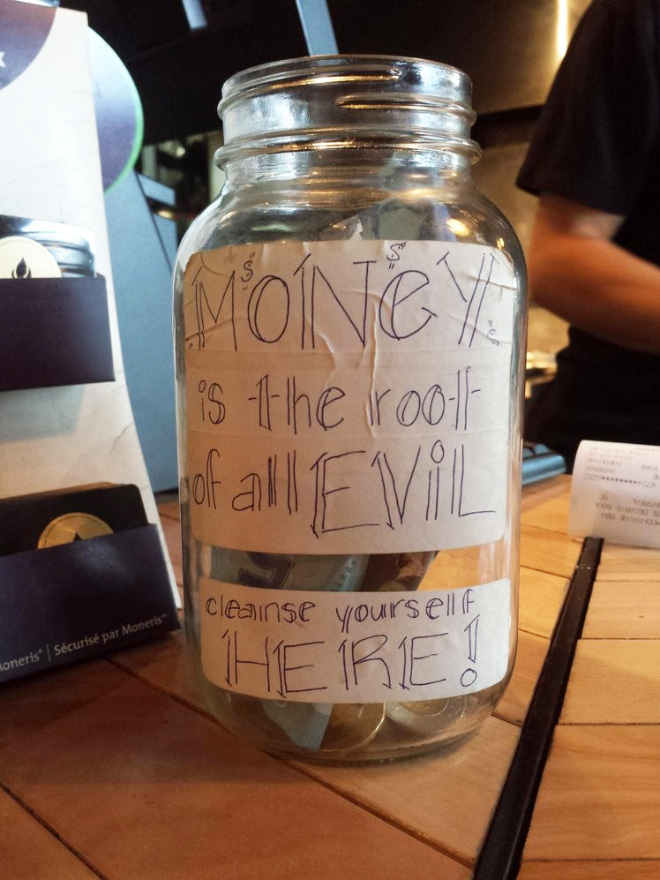 MONeY
is the root
of all EViL
cleanse yourself
HERE!
Moneris® | Sécurisé par Moneris™